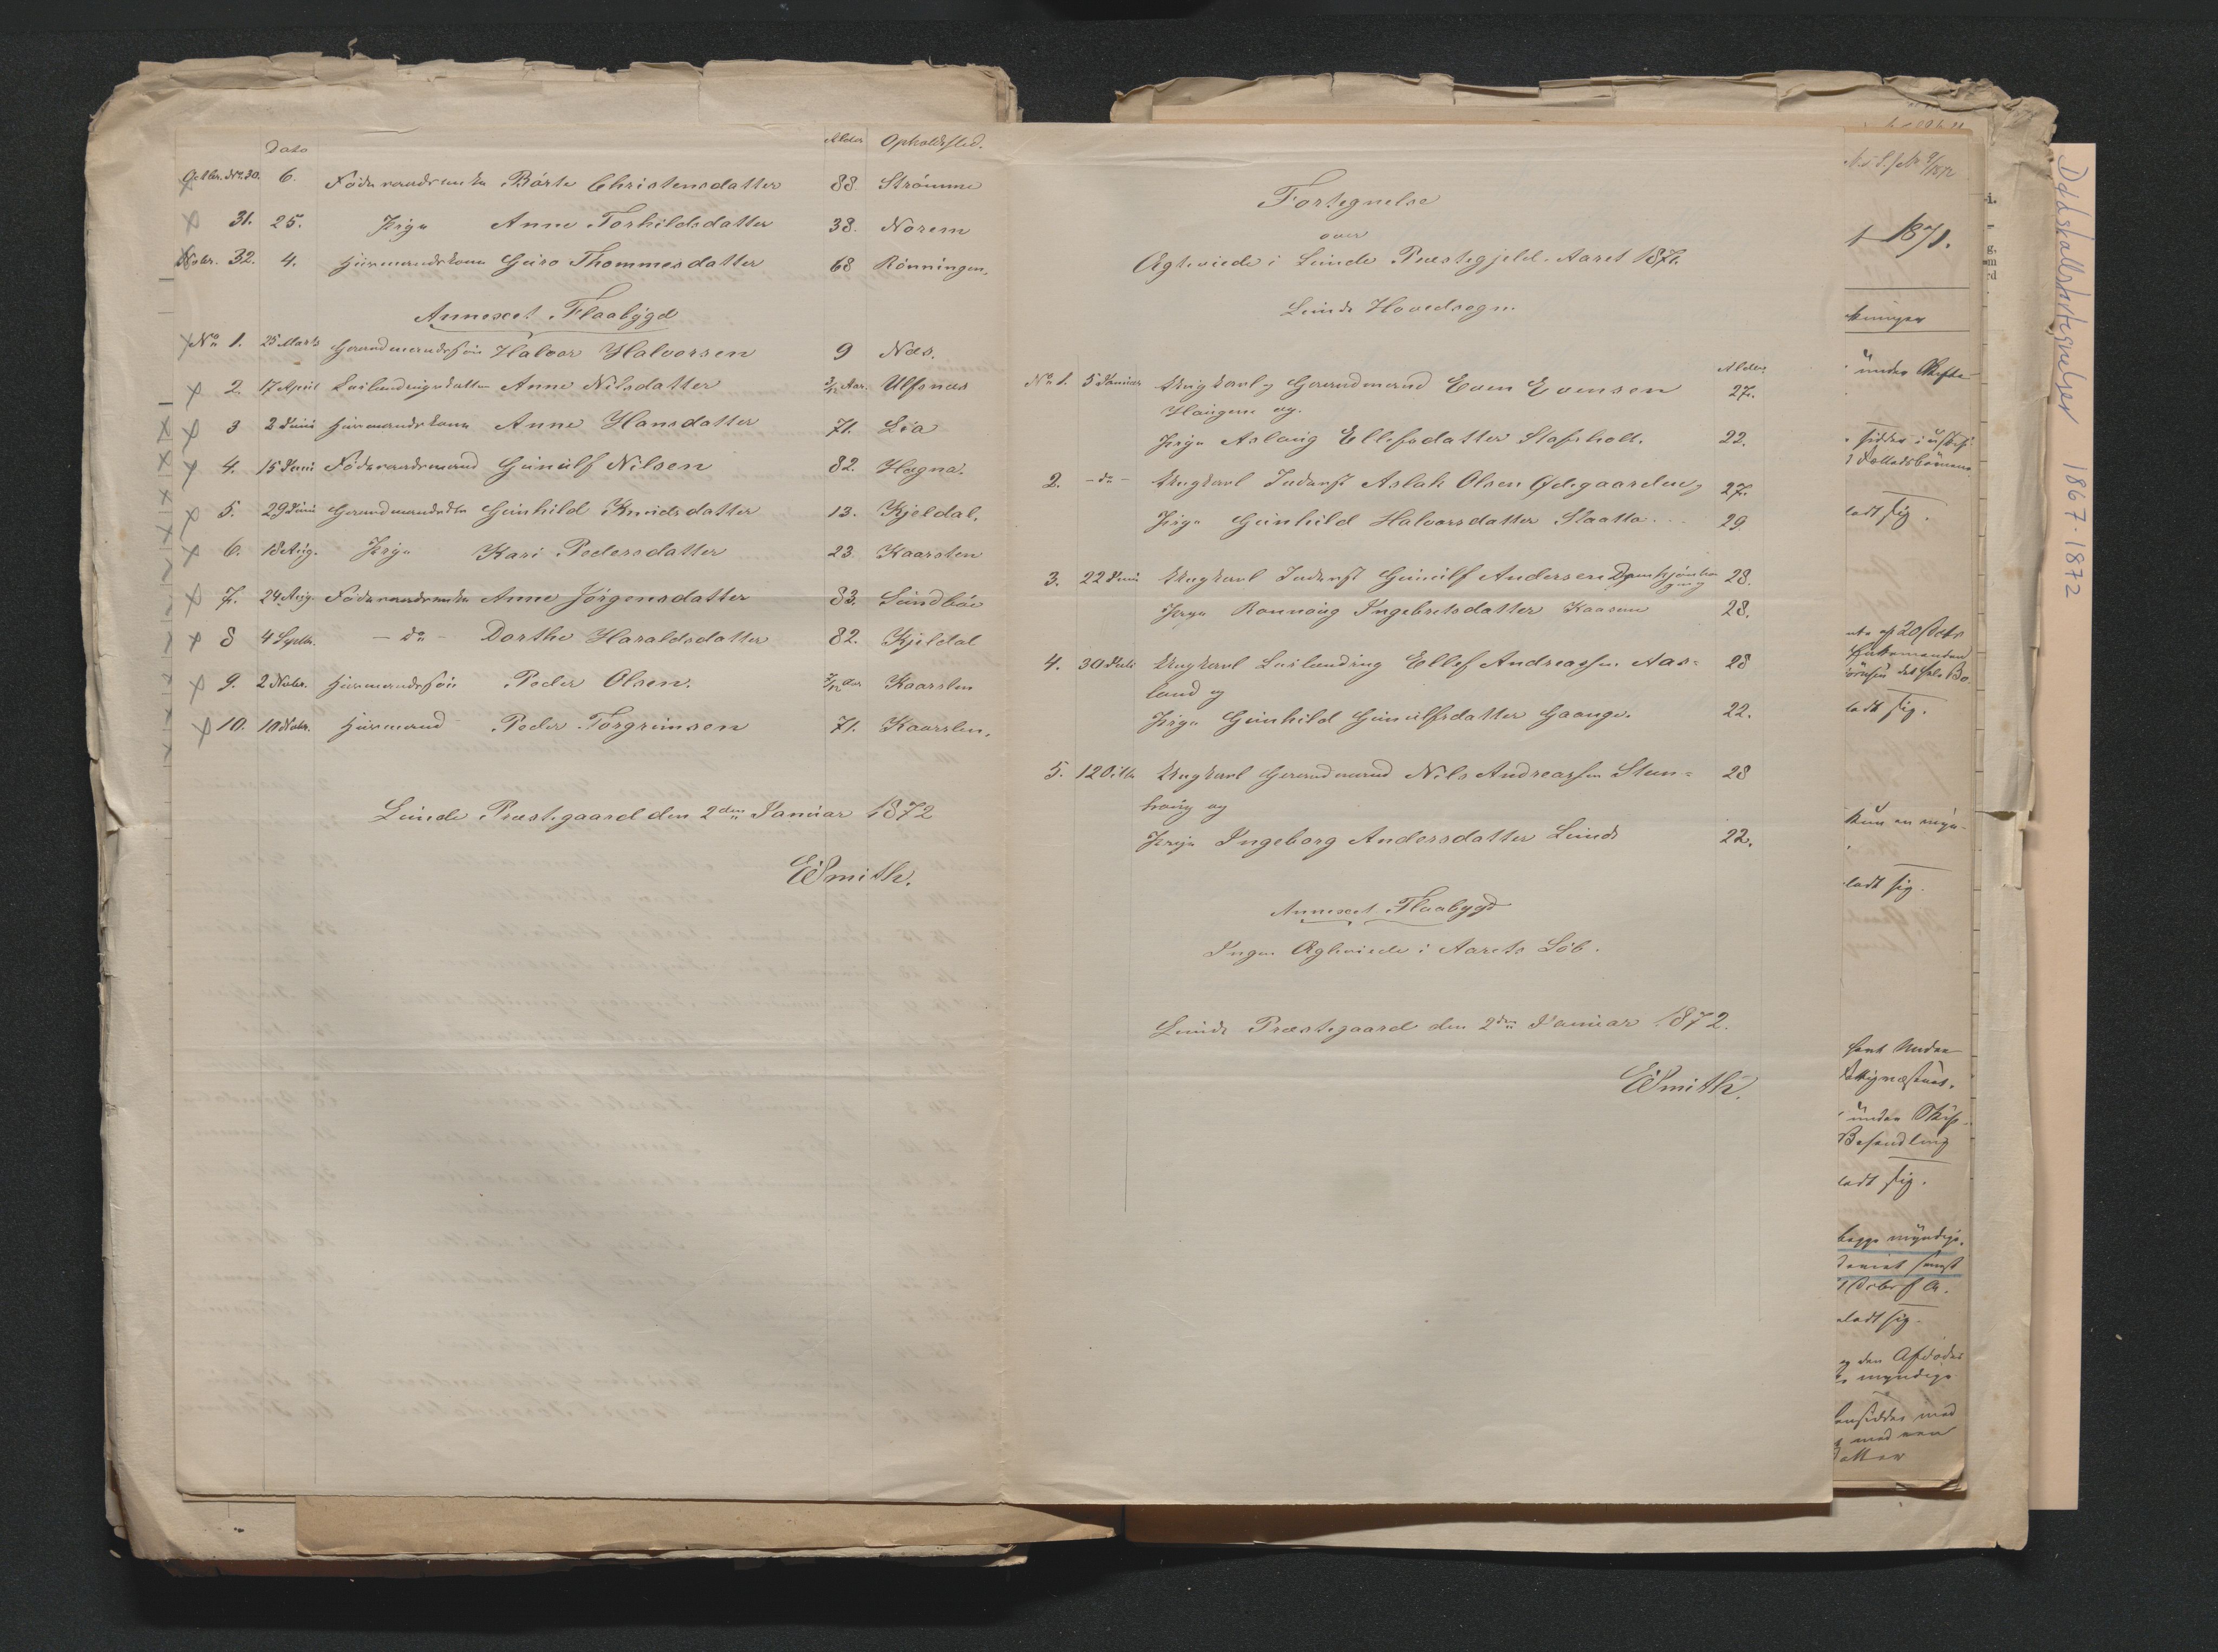 Dato Alder Opholdssted.
Octbr. No. 30. 6. Föderaadsenke Börte Christensdatter 88 Strömme
31. 25. Pige Anne Torhildsdatter 38. Norem
Novbr. 32. 4. Huusmandskone Guro Thommesdatter 68 Rönningen.
Annexet Flaabygd
No. 1. 25 Marts Gaardmandssön Halvor Halvorsen 9 Næs.
2. 17 April Anne Nilsdatter 3/12 Aar. Ulfsnæs
3 2 Juni Huusmandskone Anne Hansdatter 71. Lia
4. 15 Juni Föderaadsmand Gunulf Nilsen 82. Hagna.
5. 29 Juni Gaardmandsdtr Gunhild Knudsdatter 13. Kjeldal.
6. 18 Aug. Pige Kari Pedersdatter 23. Kaarsten
7. 24 Aug. Föderaadsenke Anne Jörgensdatter 83. Sundböe
8 4 Septb. - do - Dorthe Haraldsdatter 82. Kjeldal
9. 2 Novbr. Huusmandssön Peder Olsen. 7/12 Aar Kaarsten
10. 10 Novbr. Huusmand Peder Torgrimsen 71. Kaarsten.
Lunde Præstegaard den 2den Januar 1872
ESmith.
Fortegnelse
over
Ægteviede i Lunde Præstegjeld. Aaret 1871.
Lunde Hovedsogn.
Alder.
No. 1. 5 Januar Ungkarl, Gaardmand Even Evensen 27.
Haugene og.
Pige Aslaug Ellefsdatter Stafsholt. 22.
2. - do - Ungkarl Inderst Aslak Olsen Ødegaarden, 27.
Pige Gunhild Halvorsdatter Slaatta 29
3. 22 Juni Ungkarl Inderst Gunulf Andersen 28.
og
Pige Rannoug Ingebretsdatter Kaasene 28.
4. 30 Ungkarl Ellef Andreassen Aas- 28
land og
Pige Gunhild Gunulfsdatter Gaange. 22.
5. 12 Octb Ungkarl Gaardmand Nils Andreassen Steen- 28
houg og
Pige Ingeborg Andersdatter Lunde 22.
Annexet Flaabygd
Ingen Ægteviede i Aarets Löb.
Lunde Præstegaard den 2den Januar 1872.
ESmith.
1871.
under Skifte
ladt sig.
af 20 Octbr
ladt sig.
Kun en myn-
ladt sig.
under Skifte
Behandling
ladt sig.
begge myndige.
ladt sig.
og den Afdödes
myndige
med
med een
Datter
Dödsfallsfortegnelser 1867-1872